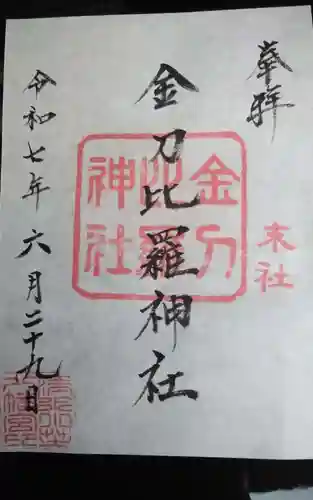 奉拝
末社
金刀比羅神社
金刀比羅神社
令和七年六月二十九日